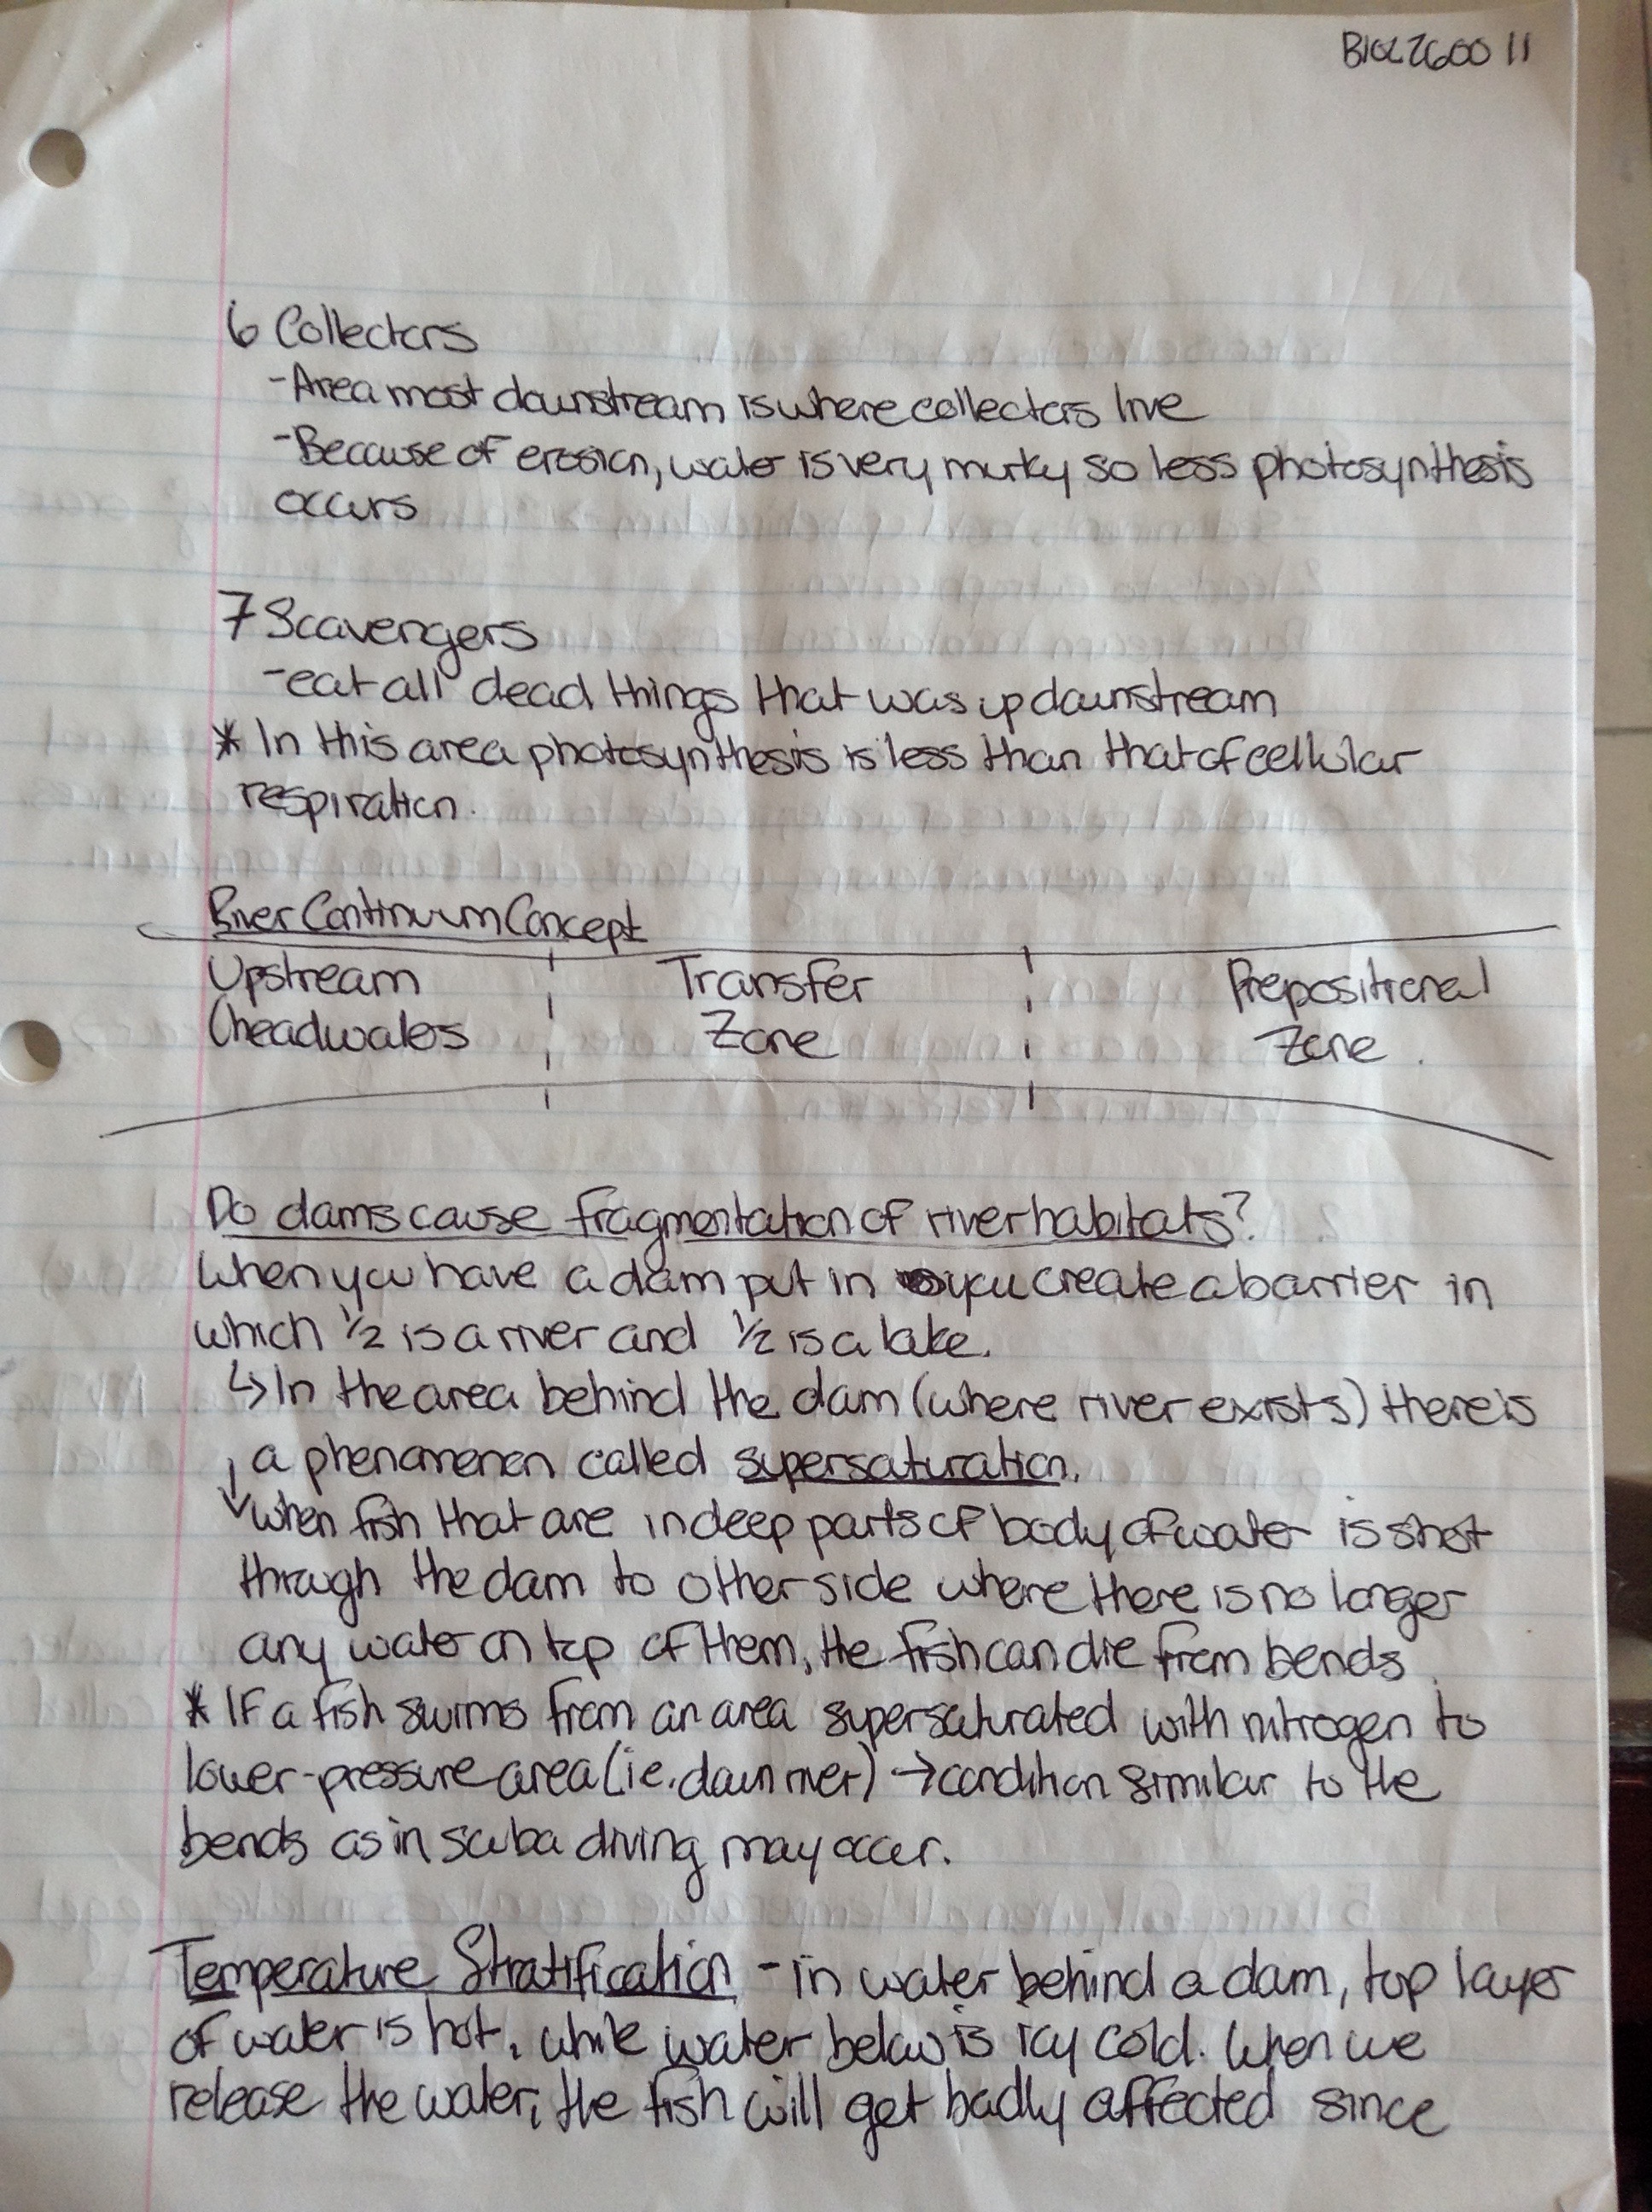 BIOL2600 11
6 Collectors
-Area most downstream is where collectors live
-Because of erosion, water is very murky so less photosynthesis
occurs
7 Scavengers
-eat all dead things that was up downstream
* In this area photosynthesis is less than that of cellular
respiration.
River Continuum Concept
Upstream Transfer Prepositional
(headwaters Zone Zone
Do dams cause fragmentation of river habitats?
When you have a dam put in you create a barrier in
which 1/2 is a river and 1/2 is a lake.
↳ In the area behind the dam (where river exists) there is
a phenomenon called supersaturation.
↓ when fish that are in deep parts of body of water is shot
through the dam to other side where there is no longer
any water on top of them, the fish can die from bends
* If a fish swims from an area supersaturated with nitrogen to
lower-pressure area (ie. down river) → condition similar to the
bends as in scuba diving may occur.
Temperature Stratification - in water behind a dam, top layer
of water is hot, while water below is icy cold. When we
release the water, the fish will get badly affected since